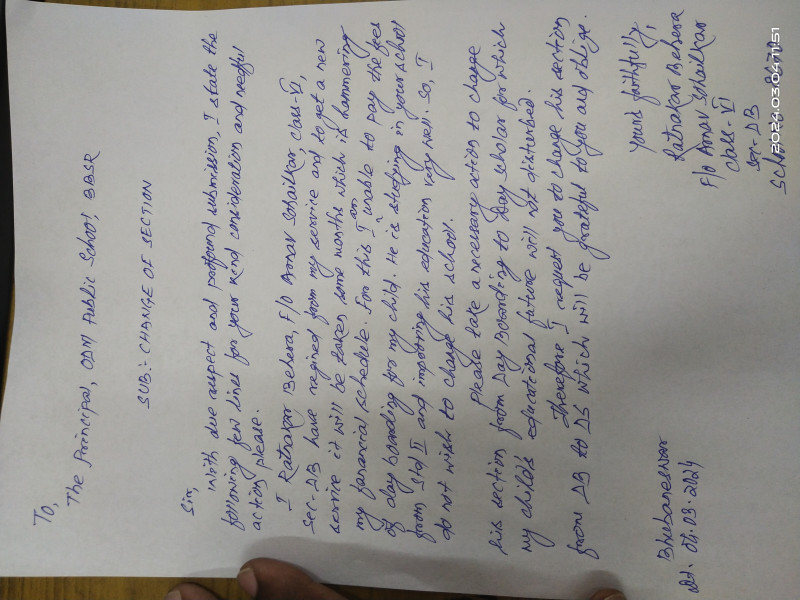 To,
The Principal, ODM Public School, BBSR
SUB:- CHANGE OF SECTION
Sir,
With due respect and profound submission, I state the
following few lines for your kind consideration and needful
action please.
I Ratnakar Behera, F/o Arnav Sohailkar, class-VI,
Sec-DB have regined from my service and to get a new
service it will be taken some months which is hammering
my financial schedule. For this I am unable to pay the fees
of day boarding for my child. He is studying in your school
from Std II and improving his education very well. So, I
do not wish to change his school.
Please take a necessary action to change
his section from Day Boarding to Day Scholar for which
my child's educational future will not disturbed.
Therefore I request you to change his section
from DB to DS which will be grateful to you and oblige.
Yours faithfully,
Ratnakar Behera
F/o Arnav Sohailkar
Class-VI
Sec-DB
Bhubaneswar
Dt. 04.03.2024
2024.03.04 11:51